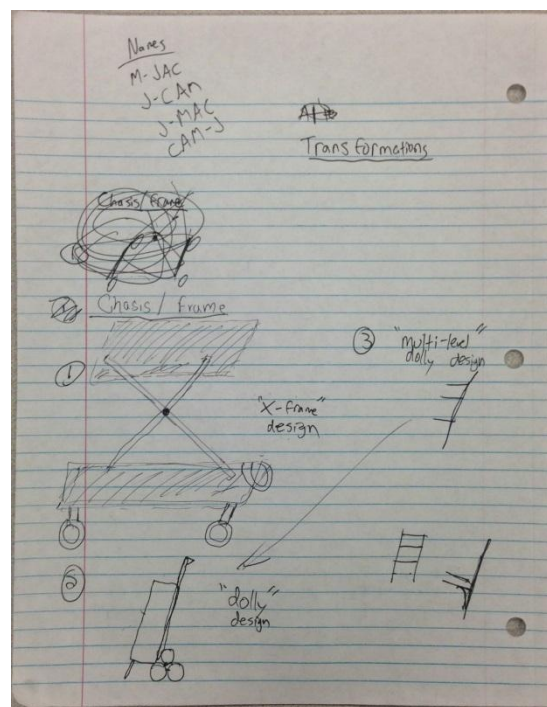 Names
M-JAC
J-CAM
J-MAC
CAM-J
Transformations
Chasis/frame
Chasis/frame
1
"X-frame"
design
3 "multi-level"
dolly design
2
"dolly"
design